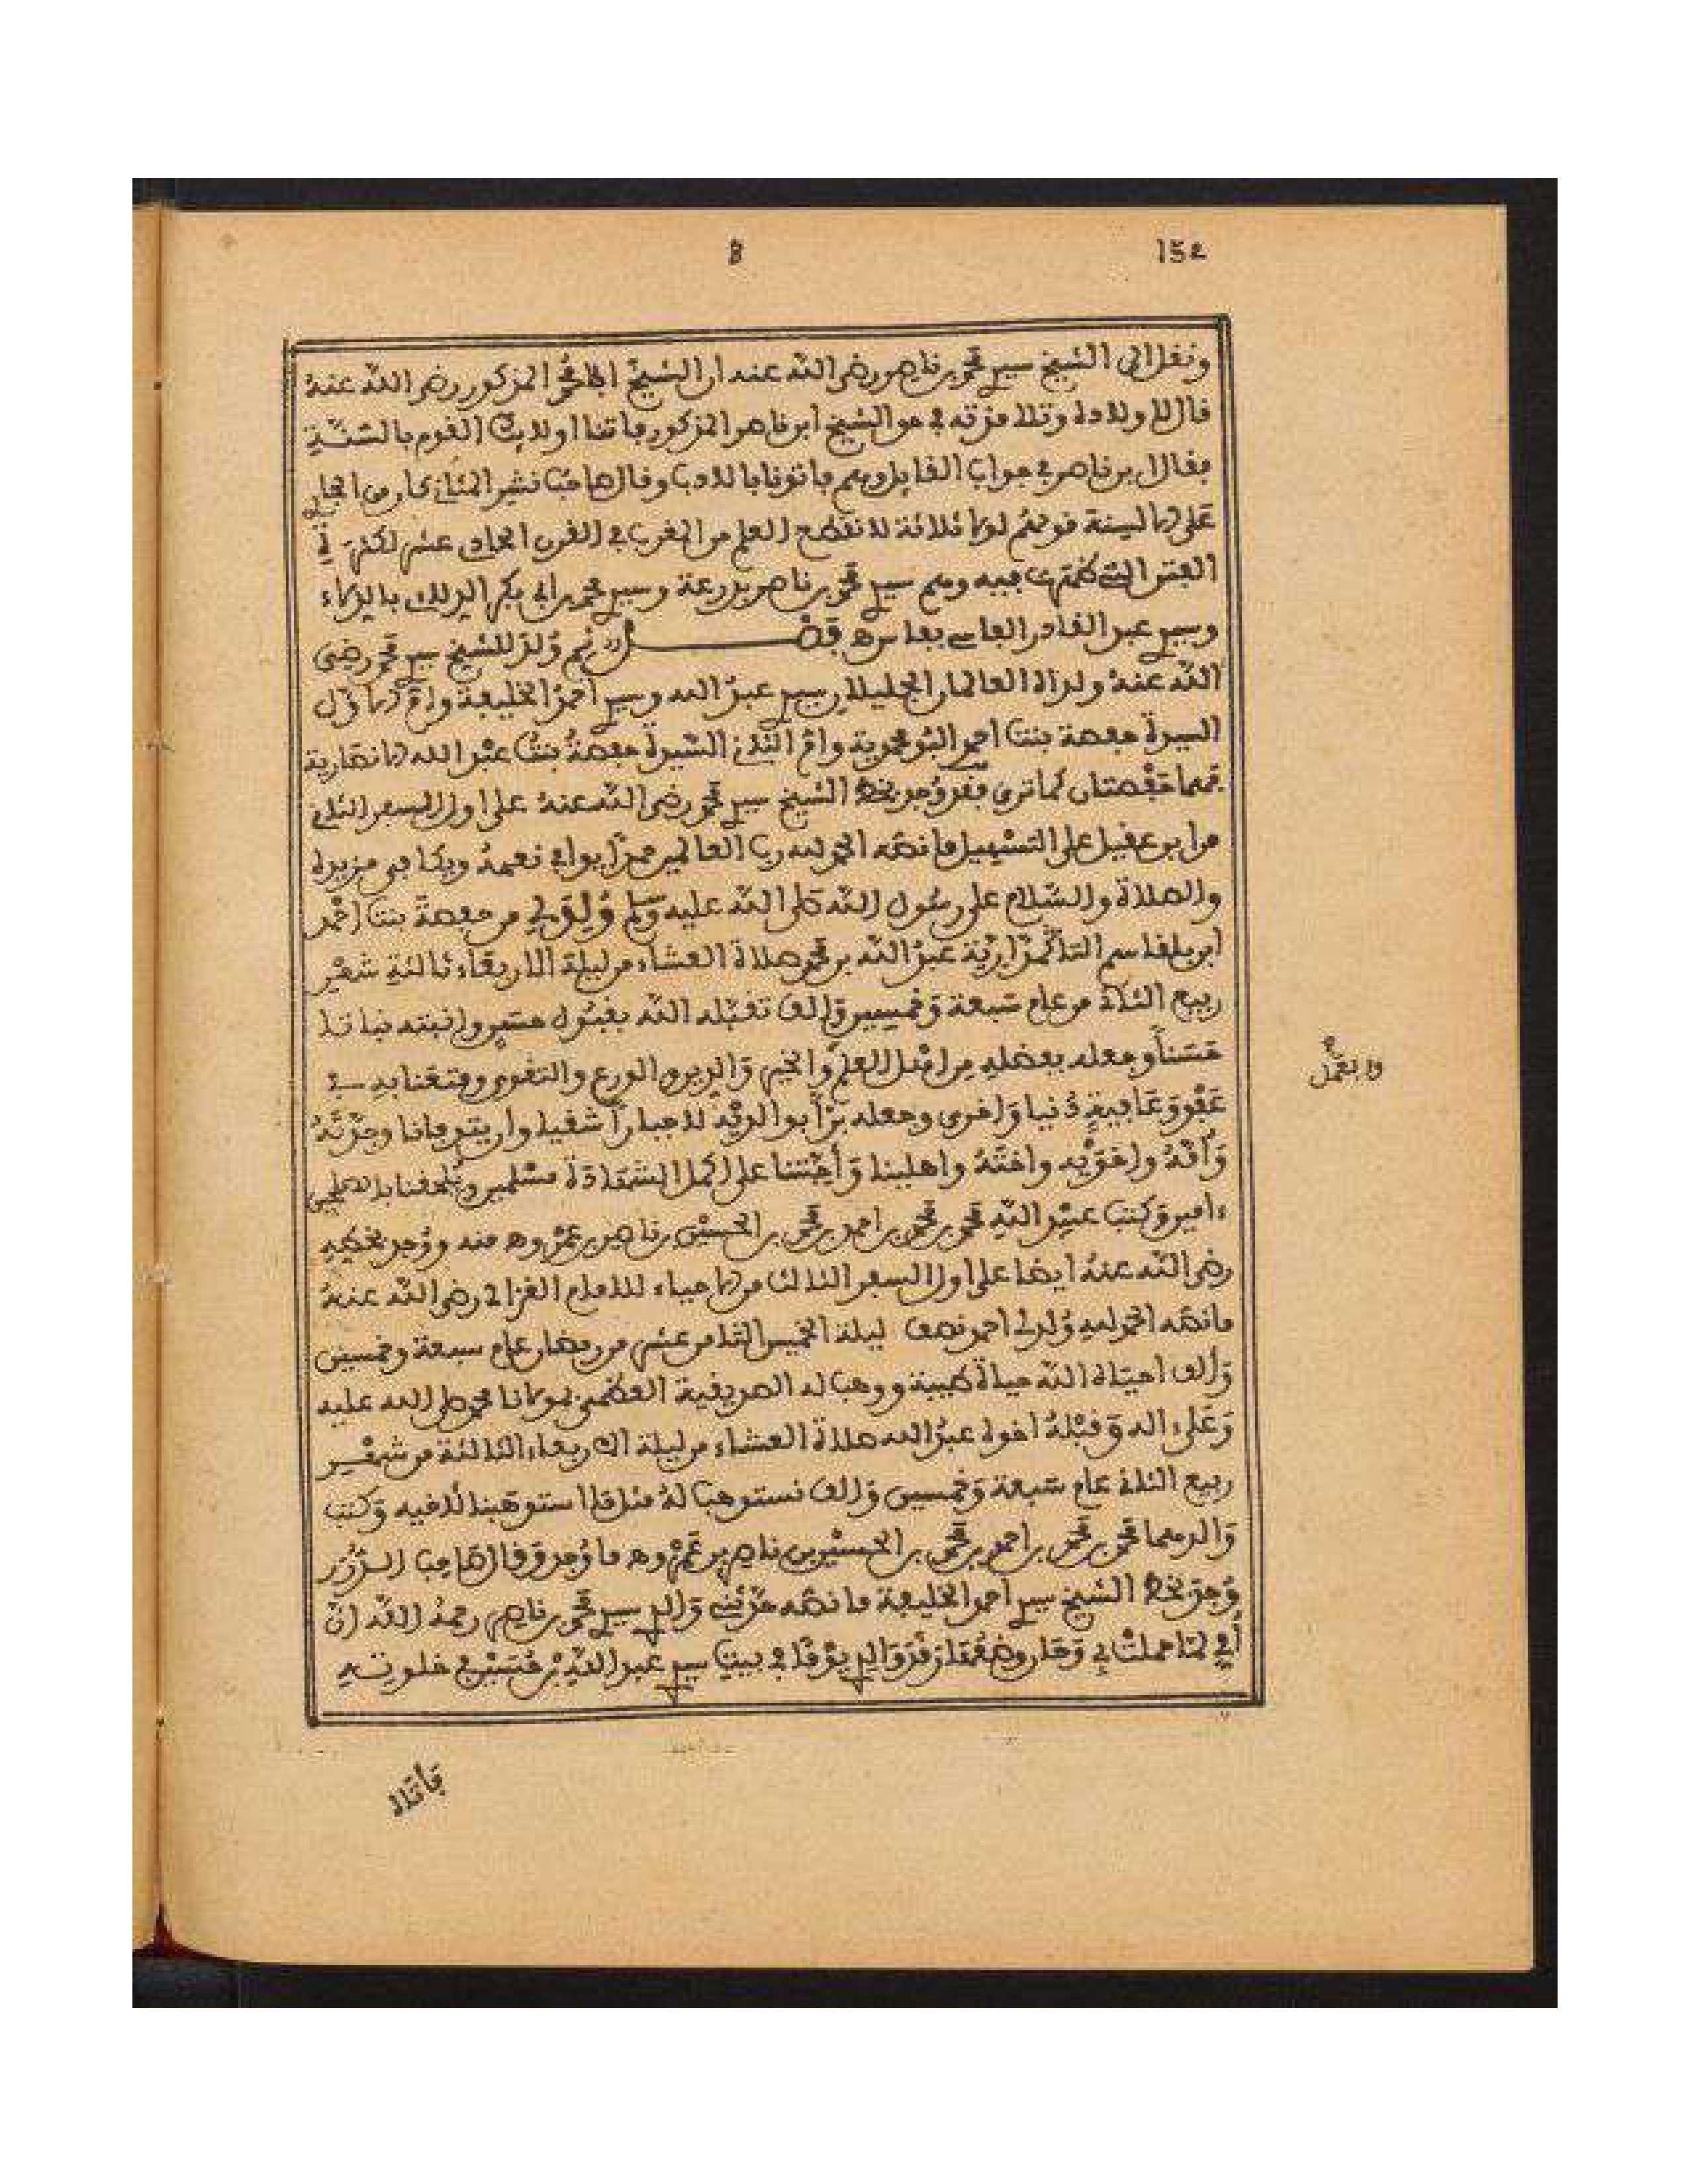 152
8
ونقل الى الشيخ سيدى محمد بن ناصر رضى الله عنه ان الشيخ المذكور رضى الله عنه
قال لاولاده وتلامذته في حق الشيخ ابن ناصر المذكور فاتنا اولاد القوم بالسنة
فقال ابن ناصر في جواب القايل وهم فاتونا بالادب وقال صاحب نشر المثاني جار على
على الالسنة قولهم لولا ثلاثة لانقطع العلم من المغرب في القرن الحادى عشر لكثرة
الفتن التى ظهرت فيه وهم سيدى محمد بن ناصر بدرعة وسيدى محمد بن ابى بكر الدلائى بالدلاء
وسيدى عبد القادر الفاسى بفاس اهـ فصـــل ثم ولد للشيخ سيدى محمد رضى
الله عنه ولداه العالمان الجليلان سيدى عبد الله وسيدى احمد الخليفة وام الاول
السيدة حفصة بنت احمد وام الثانى السيدة حفصة بنت عبد الله الانصارية
فهما حفصتان كما ترى فقد وجد بخط الشيخ سيدى محمد رضى الله عنه على اول السفر الثانى
من ابن عقيل على التسهيل ما نصه الحمد لله رب العالمين حمدا يوافى نعمه ويكافى مزيده
والصلاة والسلام على رسول الله صلى الله عليه وسلم ولد لى من حفصة بنت احمد
ابن بلقاسم عبد الله بن محمد صلاة العشاء من ليلة الاربعاء ثالثة شهر
ربيع الثانى من عام سبعة وخمسين والف تقبله الله بقبول حسن وانبته نباتا
حسنا وجعله بفضله من اهل العلم والخير والدين والورع والتقوى ومتعنا به فى
عفو وعافية دنيا واخرى وجعله برا بوالديه لا جبارا شقيا وان يتوفانا وجدته
وامه واخويه واخته واهلينا واحبتنا على اكمل الشهادة مسلمين ويلحقنا بالصالحين
ءامين وكتب عبيد الله محمد بن محمد بن احمد بن محمد بن الحسين بن ناصر بن عمرو اهـ منه ووجد بخطه
رضى الله عنه ايضا على اول السفر الثالث من الاحياء للامام الغزالى رضى الله عنه
ما نصه الحمد لله ولد لى احمد نصف ليلة الخميس الثامن عشر من رمضان عام سبعة وخمسين
والف احياه الله حياة طيبة ووهب له الصديقية العظمى بمولانا محمد صلى الله عليه
وعلى ءاله وقبله اخوه عبد الله صلاة العشاء من ليلة الاربعاء الثالثة من شهر
ربيع الثانى عام سبعة وخمسين والف نستوهب له مثل ما استوهبنا لاخيه وكتب
والدهما محمد بن محمد بن احمد بن محمد بن الحسين بن ناصر بن عمرو اهـ ما وجد وقال صاحب الدرر
وجد بخط الشيخ سيدى احمد الخليفة ما نصه حدثنى والدى سيدى محمد بن ناصر رحمه الله ان
امى لما حملت بى وحان وضعها رقد والدى يوما فى بيت سيدى عبد الله بن حسين فى خلوته
والعمل
فاتاه